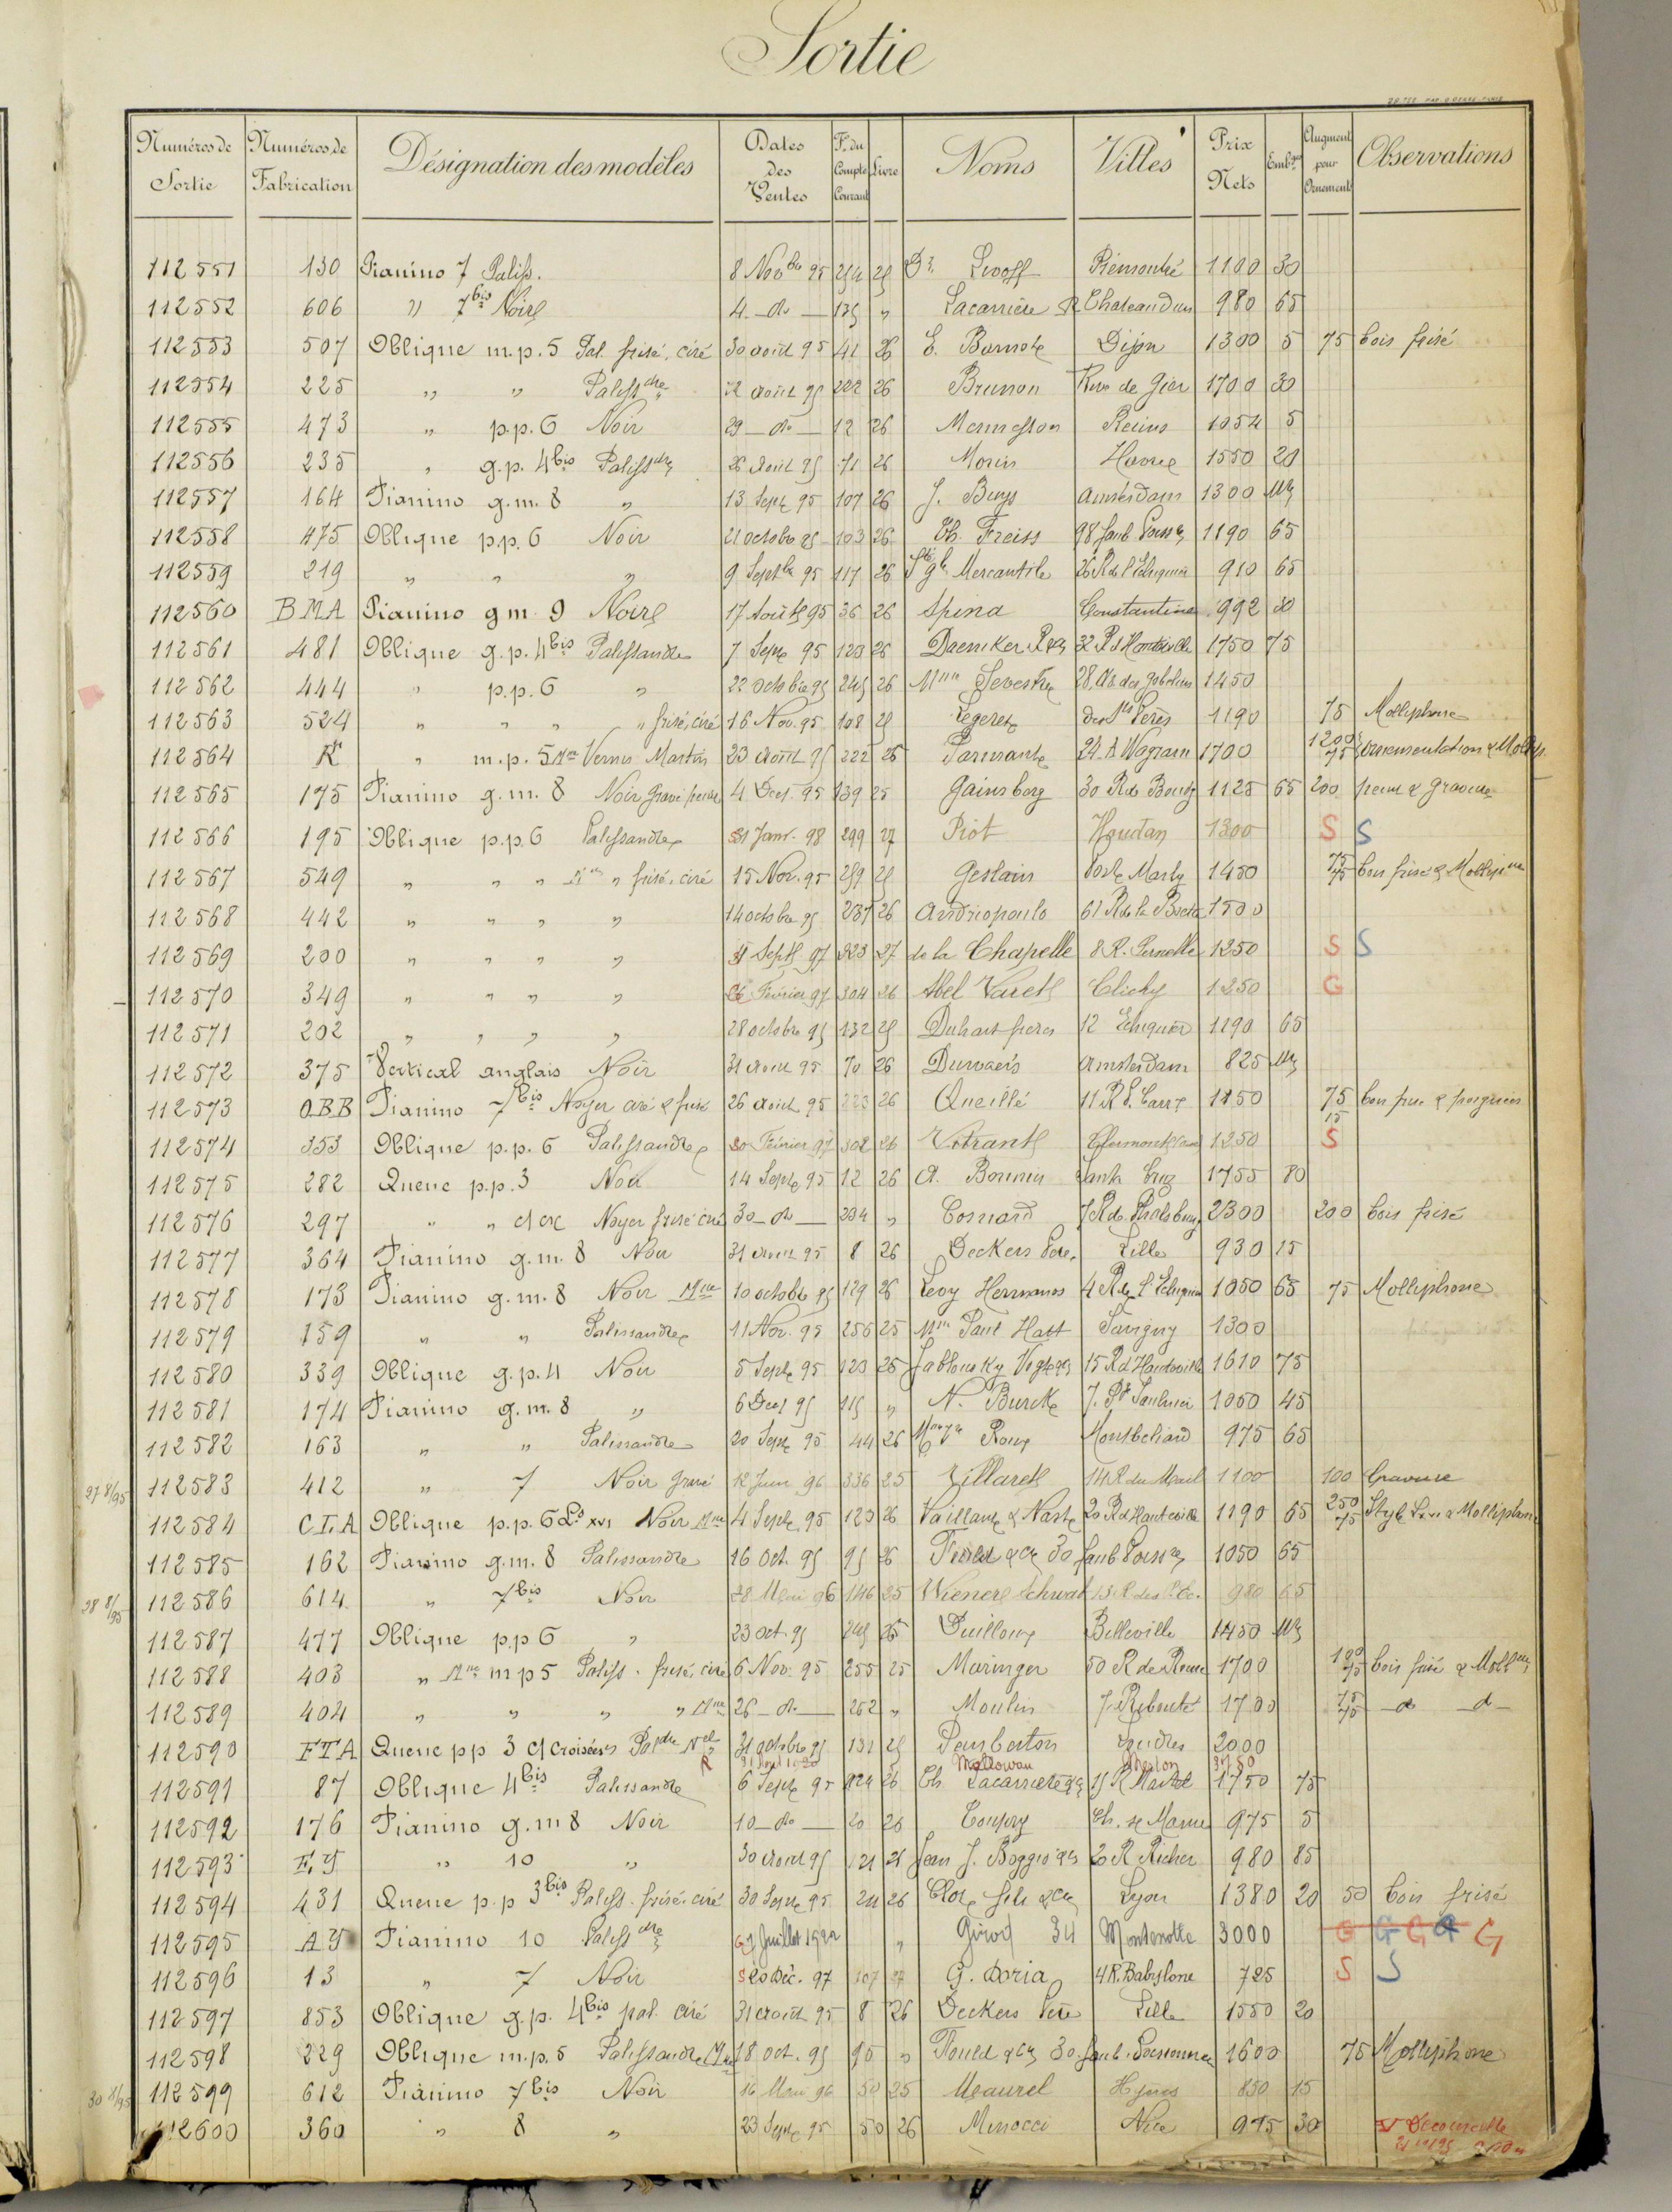 Sortie
Numéros de Sortie Numéros de Fabrication Désignation des modèles Dates des Ventes F.º du Compte Courant Livre Noms Villes Prix Nets Emb.ge Augment pour Ornements Observations
112551 130 Pianino 7 Paliss. 8 Nov.bre 95 25 Dr. Lwoff Prémontré 1100 30
112552 606 " 7bis Noire 4 do " Lacarrière Chateaudun 980 65
112553 507 Oblique m.p. 5 Pal. frisé, ciré 30 août 95 41 26 E. Dijon 1300 5 75 bois frisé
112554 225 " " Palissdre août 95 222 26 Brunon Rive de Gier 1700 30
112555 473 " p.p. 6 Noir 29 do 12 26 Mennesson Reims 1054 5
112556 235 " g.p. 4bis Palissdre 26 Août 95 71 26 Morin Havre 1550 20
112557 164 Pianino g.m. 8 " 13 Septe 95 107 26 J. Buys Amsterdam 1300
112558 475 Oblique p.p. 6 Noir 21 octobre 95 103 26 Th. Freiss 98 faub. Poissre 1190 65
112559 219 " " " 9 Septbre 95 117 26 Sté gle Mercantile 26 R de l'Echiquier 910 65
112560 BMA Pianino g m 9 Noire 17 Août 95 36 26 Spina Constantine 992 30
112561 481 Oblique g.p. 4bis Palissandre 7 Septe 95 123 26 Daeniker 32 R d'Hauteville 1750 75
112562 444 " p.p. 6 " 22 octobre 95 245 26 Mme Sevestre 28, Av. des Gobelins 1450
112563 524 " " " " frisé, ciré 16 Nov. 95 108 25 Legerez des Sts Pères 1190 75 Molliphone
112564 " m.p. 5 Mne Vernis Martin 23 Août 95 222 26 24 A. Wagram 1700 1200 75 ornementation & Mollip.
112565 175 Pianino g.m. 8 Noir gravé 4 Dec. 95 139 25 Gainsborg 30 R de Bondy 1125 65 200 & gravure
112566 195 Oblique p.p. 6 Palissandre 31 Janv. 98 299 27 Piot Houdan 1300 S S
112567 549 " " " Mne " frisé, ciré 15 Nov. 95 259 25 Geslain Port Marly 1450 75 75 bois frisé & Molliphne
112568 442 " " " " 14 octobre 95 237 26 Andriopoulo 61 R de la 1500
112569 200 " " " " Septe 97 323 27 de la Chapelle 8 R. Pernelle 1250 S S
112570 349 " " " " 26 Février 97 304 26 Abel Clichy 1250 G
112571 202 " " " " 28 octobre 95 132 25 Duhart frères 12 Echiquier 1190 65
112572 375 Vertical anglais Noir 31 Août 95 70 26 Durvaers Amsterdam 825
112573 OBB Pianino 7bis Noyer ciré & frisé 26 août 95 223 26 Queillé 11 R S. 1150 75 15 bois frisé & poignées
112574 353 Oblique p.p. 6 Palissandre 20 Février 97 302 26 1250 S
112575 282 Queue p.p. 3 Noir 14 Septe 95 12 26 A. Bonnin Santa Cruz 1755 80
112576 297 " " Noyer frisé ciré 30 do 234 " Cosnard 7 R de Phalsbourg 2300 200 bois frisé
112577 364 Pianino g.m. 8 Noir 31 août 95 8 26 Deckers Père Lille 930 15
112578 173 Pianino g.m. 8 Noir Mne 10 octobre 95 129 26 Levy Hermanos 4 R de l'Echiquier 1050 65 75 Molliphone
112579 159 " " Palissandre 11 Nov. 95 256 25 Mme Paul Hatt Savigny 1300
112580 339 Oblique g.p. 4 Noir 5 Septe 95 123 25 Jablonsky Vogt 15 R d'Hauteville 1610 75
112581 174 Pianino g.m. 8 " 6 Dec 95 115 " N. Burcke 7. Pge Saulnier 1050 45
112582 163 " " Palissandre 20 Septe 95 44 26 Mme Vve Roux Montbeliard 975 65
27 8/95 112583 412 " 7 Noir gravé 12 Juin 96 336 25 Villaret 14 R du 1100 100 Gravure
112584 C.I.A Oblique p.p. 6 Ls XVI Noir Mne 4 Septe 95 123 26 Vaillant & Nast 20 R d'Hauteville 1190 65 250 75 Style L. XVI & Molliphone
112585 162 Pianino g.m. 8 Palissandre 16 Oct. 95 95 26 Fould & Cie 30 faub Poissre 1050 65
28 8/95 112586 614 " 7bis Noir 28 Mai 96 146 25 Wiener 980 65
112587 477 Oblique p.p 6 " 23 Oct. 95 245 26 Belleville 1450
112588 403 " Mne m p 5 Paliss. frisé, ciré 6 Nov. 95 255 25 Maringer 50 R de Rome 1700 100 75 bois frisé & Mollne
112589 404 " " " " Mne 26 do 262 " Moulin 7 R 1700 75 75 d d
112590 FTA Queue pp 3 c/croisées Paldre Nel 31 octobre 95 131 25 Pemberton Londres 2000
112591 87 Oblique 4bis Palissandre R 6 Septe 95 124 26 Th. Lacarrière 1750 75
112592 176 Pianino g.m 8 Noir 10 do 20 26 Ch. s/ Marne 975 5
112593 E.Y " 10 " 30 Août 95 121 26 Jean J. Boggio 20 R Richer 980 85
112594 431 Queue p.p 3bis Paliss. frisé, ciré 30 Septe 95 24 26 Clot fils & Cie Lyon 1380 20 50 bois frisé
112595 AY Pianino 10 Palissdre Juillet 1922 " Girod 34 Montenotte 3000 G G G G G
112596 13 " 7 Noir S 20 Déc. 97 107 27 G. Doria 4 R. Babylone 725 S S
112597 853 Oblique g.p. 4bis pal. ciré 31 août 95 8 26 Deckers Père Lille 1550 20
112598 229 Oblique m.p. 5 Palissandre Mne 18 oct. 95 95 " Fould & Cie 30 faub. Poissonnière 1600 75 Molliphone
30 8/95 112599 612 Pianino 7bis Noir 16 Mai 96 50 25 Meaurel Hyères 850 15
112600 360 " 8 " 23 Septe 95 50 26 Minocci Nice 975 30